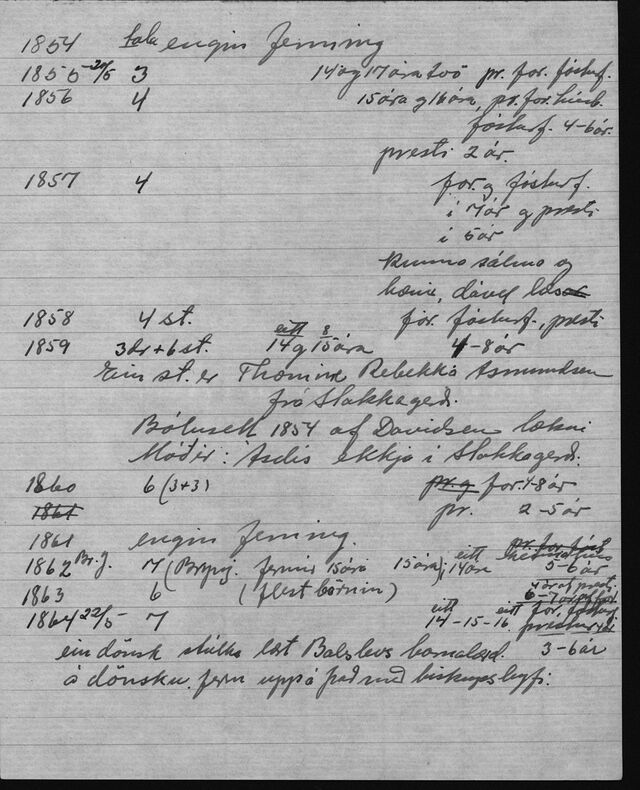 1854 tala engin ferming
1855 20/5 3 14 og 17 ára tvö pr. for. fósturf.
1856 4 15 ára og 16 ára, pr. for. húsb.
fósturf. 4-6 ár.
presti 2 ár.
1857 4 for. og fósturf.
í 7 ár og presti
í 5 ár
kunna sálma og
bænir, dável
1858 4 st. for. fósturf., presti
1859 3 dr + 6 st. eitt 14 og 8 15 ára 4-8 ár
Ein st. er Rebekka Asmundsen
frá Stakkagerði.
Bólusett 1854 af Davidsen lækni
Móðir: Ásdís ekkja í Stakkagerði.
1860 6 (3+3) pr. og for 4-8 ár
1861 pr. 2-5 ár
1861 engin ferming.
1862 Br. J. 7 (Brynj. fermir 15 ára 15 ára, eitt 14 ára 5-6 ár
1863 6 (flest börnin) 6-7 ár
1864 22/5 7 eitt 14-15-16 eitt for. fósturf.
ein dönsk stúlka læst Balslevs barnalærd. 3-6 ár
á dönsku. ferm uppá það með biskupsleyfi.